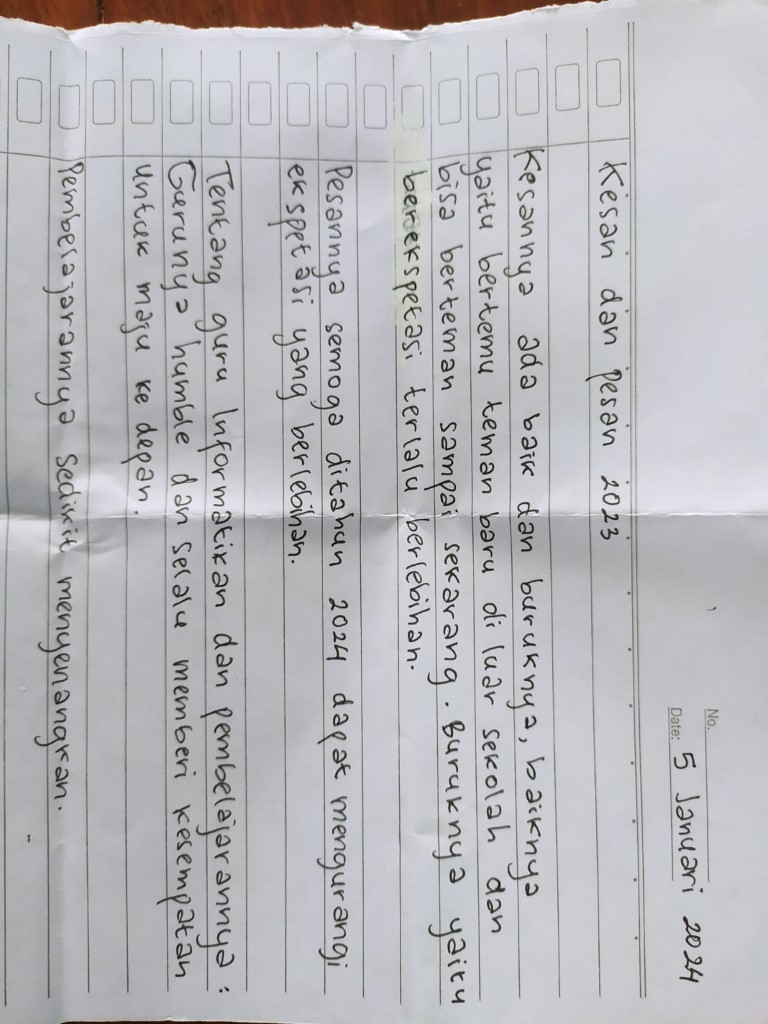 No.
Date: 5 Januari 2024
Kesan dan pesan 2023
Kesannya ada baik dan buruknya, baiknya
yaitu bertemu teman baru di luar sekolah dan
bisa berteman sampai sekarang. Buruknya yaitu
berekspetasi terlalu berlebihan.
Pesannya semoga ditahun 2024 dapat mengurangi
ekspetasi yang berlebihan.
Tentang guru Informatikan dan pembelajarannya :
Gurunya humble dan selalu memberi kesempatan
untuk maju ke depan.
Pembelajarannya sedikit menyenangkan.